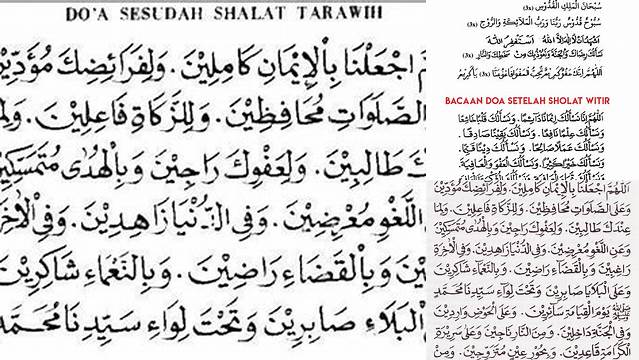 DO'A SESUDAH SHALAT TARAWIH
اجْعَلْنَا بِالْإِيمَانِ كَامِلِينَ. وَلِفَرَائِضِكَ مُؤَدِّينَ
الصَّلَوَاتِ مُحَافِظِينَ. وَلِلزَّكَاةِ فَاعِلِينَ. وَلِمَا
طَالِبِينَ. وَلِعَفْوِكَ رَاجِينَ وَبِالْهُدَى مُتَمَسِّكِينَ
اللَّغْوِ مُعْرِضِينَ. وَفِي الدُّنْيَا زَاهِدِينَ. وَفِي الْآخِرَةِ
وَبِالْقَضَاءِ رَاضِينَ. وَبِالنَّعْمَاءِ شَاكِرِينَ
الْبَلَاءِ صَابِرِينَ وَتَحْتَ لِوَاءِ سَيِّدِنَا مُحَمَّدٍ
سُبْحَانَ الْمَلِكِ الْقُدُّوسِ (3x)
سُبُّوحٌ قُدُّوسٌ رَبُّنَا وَرَبُّ الْمَلَائِكَةِ وَالرُّوحِ (3x)
BACAAN DOA SETELAH SHOLAT WITIR
اللّٰهُمَّ إِنَّا نَسْأَلُكَ إِيمَانًا دَائِمًا. وَنَسْأَلُكَ قَلْبًا خَاشِعًا
وَنَسْأَلُكَ عِلْمًا نَافِعًا. وَنَسْأَلُكَ يَقِينًا صَادِقًا.
وَنَسْأَلُكَ عَمَلًا صَالِحًا. وَنَسْأَلُكَ دِينًا قَيِّمًا.
وَنَسْأَلُكَ خَيْرًا كَثِيرًا. وَنَسْأَلُكَ الْعَفْوَ وَالْعَافِيَةَ
اللّٰهُمَّ اجْعَلْنَا بِالْإِيمَانِ كَامِلِينَ. وَلِفَرَائِضِكَ مُؤَدِّينَ
وَعَلَى الصَّلَوَاتِ مُحَافِظِينَ. وَلِلزَّكَاةِ فَاعِلِينَ. وَلِمَا
عِنْدَكَ طَالِبِينَ. وَلِعَفْوِكَ رَاجِينَ وَبِالْهُدَى مُتَمَسِّكِينَ
وَعَنِ اللَّغْوِ مُعْرِضِينَ. وَفِي الدُّنْيَا زَاهِدِينَ. وَفِي الْآخِرَةِ
رَاغِبِينَ. وَبِالْقَضَاءِ رَاضِينَ. وَبِالنَّعْمَاءِ شَاكِرِينَ
وَعَلَى الْبَلَايَا صَابِرِينَ. وَتَحْتَ لِوَاءِ سَيِّدِنَا مُحَمَّدٍ
ﷺ يَوْمَ الْقِيَامَةِ سَائِرِينَ. وَعَلَى الْحَوْضِ وَارِدِينَ
وَفِي الْجَنَّةِ دَاخِلِينَ. وَمِنَ النَّارِ نَاجِينَ. وَعَلَى سَرِيرَةِ
الْكَرَامَةِ قَاعِدِينَ. وَبِحُورٍ عِينٍ مُتَزَوِّجِينَ. وَمِنْ